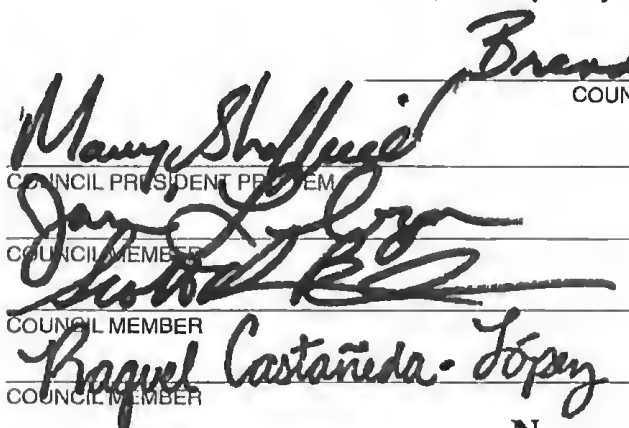 Bren
COUN
Mary Sheffield
COUNCIL PRESIDENT PRO TEM
COUNCIL MEMBER
Scott
COUNCIL MEMBER
Raquel Castañeda-López
COUNCIL MEMBER